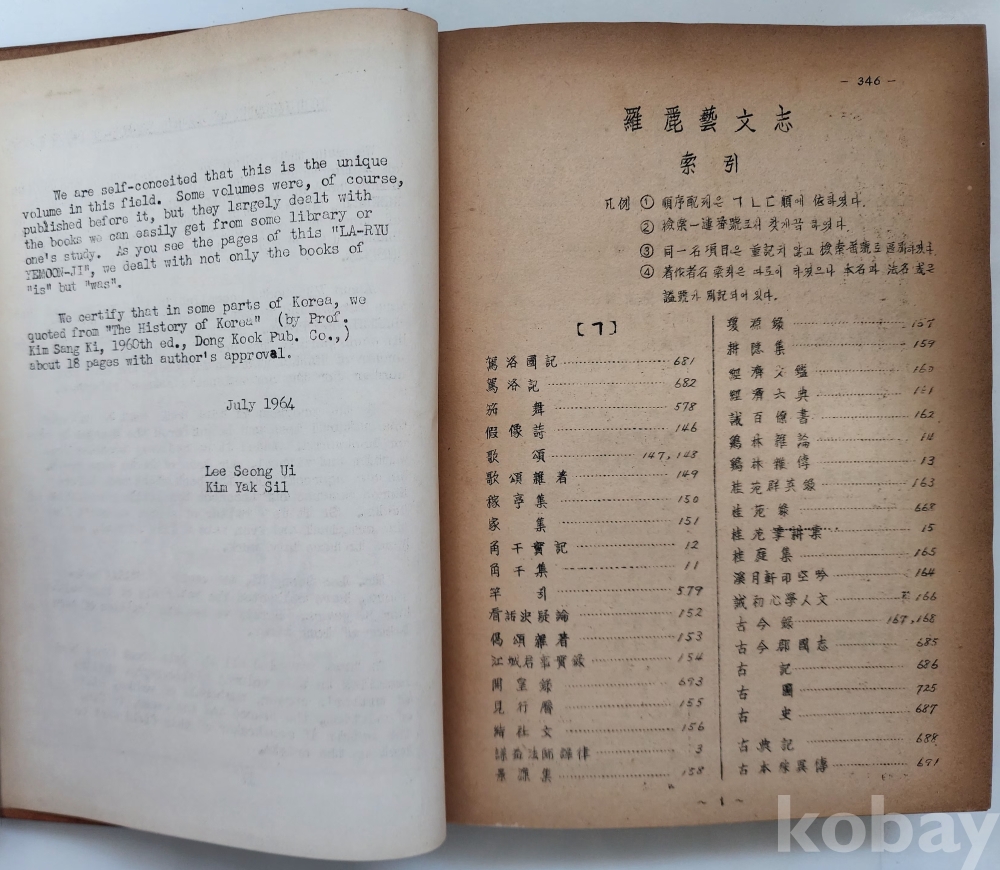 We are self-conceited that this is the unique
volume in this field. Some volumes were, of course,
published before it, but they largely dealt with
the books we can easily get from some library or
one's study. As you see the pages of this "LA-RYU
YEMOON-JI", we dealt with not only the books of
"is" but "was".
We certify that in some parts of Korea, we
quoted from "The History of Korea" (by Prof.
Kim Sang Ki, 1960th ed., Dong Kook Pub. Co.,)
about 18 pages with author's approval.
July 1964
Lee Seong Ui
Kim Yak Sil
- 346 -
羅麗藝文志
索引
凡例 ① 順序配列은 ㄱㄴㄷ順에 依하였다.
② 檢索一連番號로서 찾게끔 하였다.
③ 同一名項目은 重記치 않고 檢索番號로
④ 著作者名 索引은 따로이 하였으나 本名과 法名 或은
諡號가 附記되어 있다.
[ㄱ]
駕洛國記 681
駕洛記 682
笳舞 578
假像詩 146
歌頌 147, 148
歌頌雜著 149
稼亭集 150
家集 151
角干實記 12
角干集 11
竿引 579
看話決疑論 152
偈頌雜著 153
江城君 實錄 154
開皇錄 693
見行曆 155
文 156
法師 律 3
集 158
瓊源錄 157
耕隱集 159
經濟文鑑 160
經濟六典 161
誡百僚書 162
鷄林雜論 14
鷄林雜傳 13
桂苑群英錄 163
桂苑錄 668
桂苑筆耕集 15
桂庭集 165
溪月軒印空吟 164
誡初心學人文 166
古今錄 167, 168
古今郡國志 685
古記 686
古圖 725
古史 687
古典記 688
古本殊異傳 691
~ 1 ~
kobay